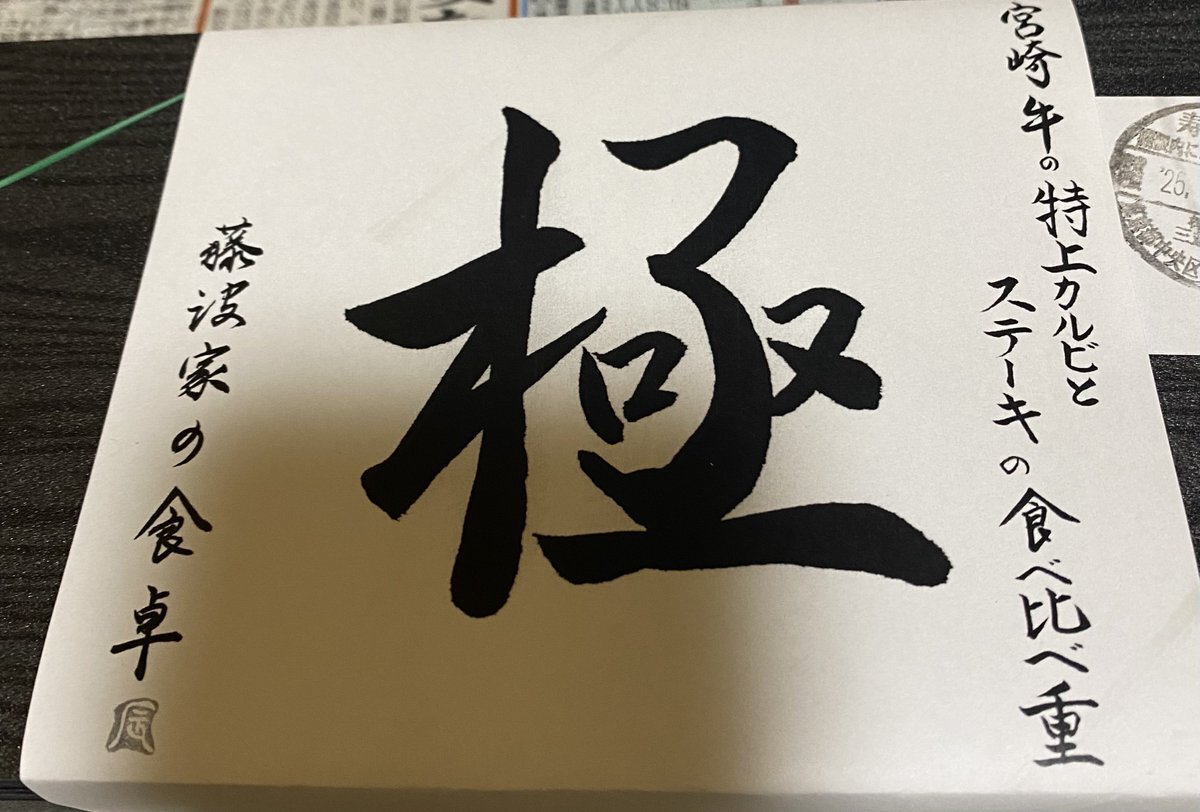 宮崎牛の特上カルビと
ステーキの食べ比べ重
極
藤波家の食卓
寿
'25.
中央区